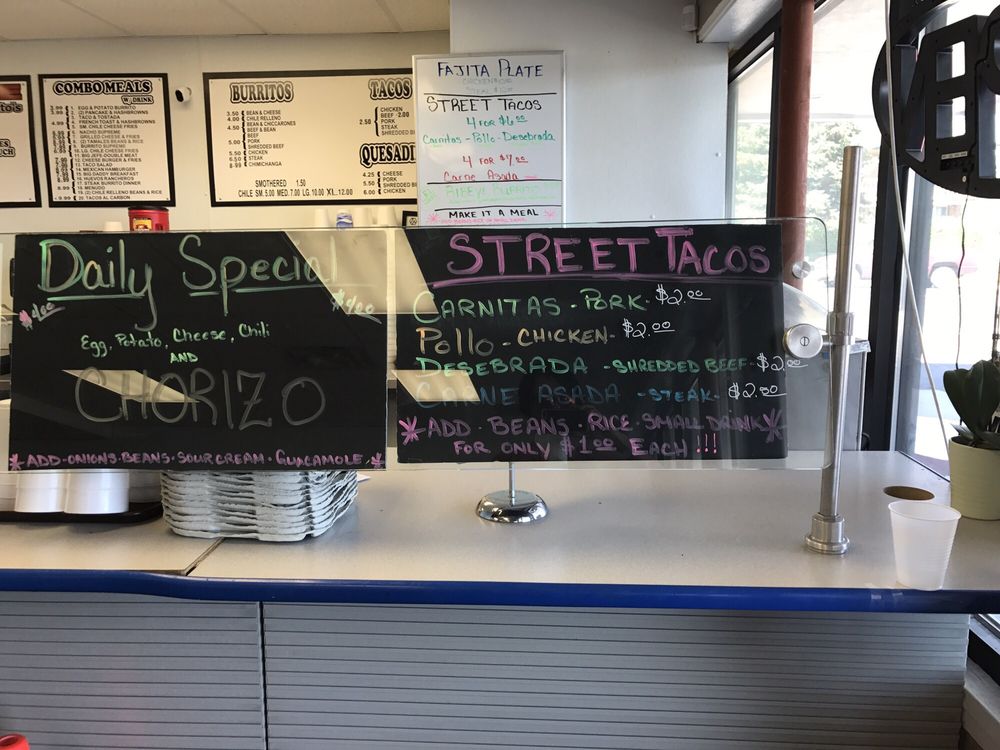 COMBO MEALS
W/DRINK
1. EGG & POTATO BURRITO
2. (2) PANCAKE & HASHBROWNS
3. TACO & TOSTADA
4. FRENCH TOAST & HASHBROWNS
5. SM. CHILE CHEESE FRIES
6. NACHO SUPREME
7. GRILLED CHEESE & FRIES
8. (2) TAMALES BEANS & RICE
9. BURRITO SUPREME
10. LG. CHILE CHEESE FRIES
11. BIG JEFS DOUBLE MEAT
12. CHEESE BURGER & FRIES
13. TACO SALAD
14. MEXICAN HAMBURGER
15. BIG DADDY BREAKFAST
16. HUEVOS RANCHEROS
17. STEAK BURRITO DINNER
18. MENUDO
19. (2) CHILE RELLENO BEANS & RICE
20. TACOS AL CARBON
BURRITOS
3.50 BEAN & CHEESE
4.50 CHILE RELLENO
4.50 BEAN & CHICCARONES
4.50 BEEF & BEAN
BEEF
5.00 PORK
SHREDDED BEEF
5.50 CHICKEN
6.50 STEAK
6.99 CHIMICHANGA
SMOTHERED 1.50
CHILE SM. 5.00 MED. 7.00 LG. 10.00 XL. 12.00
TACOS
CHICKEN
BEEF 2.00
2.50 PORK
STEAK
SHREDDED B
QUESADI
4.25 CHEESE
PORK
5.50 SHREDDED B
6.00 CHICKEN
FAJITA PLATE
STREET TACOS
4 FOR $6.00
Carnitas - Pollo - Desebrada
4 FOR $7.00
Carne Asada
RIBEYE BURRITO
MAKE IT A MEAL
Daily Special
$4.00 $4.00
Egg, Potato, Cheese, Chili
AND
CHORIZO
ADD-ONIONS-BEANS-SOUR CREAM-GUACAMOLE
STREET TACOS
CARNITAS - PORK - $2.00
Pollo - CHICKEN - $2.00
DESEBRADA - SHREDDED BEEF - $2.00
CARNE ASADA - STEAK - $2.00
ADD - BEANS - RICE - SMALL DRINK
FOR ONLY $1.00 EACH!!!